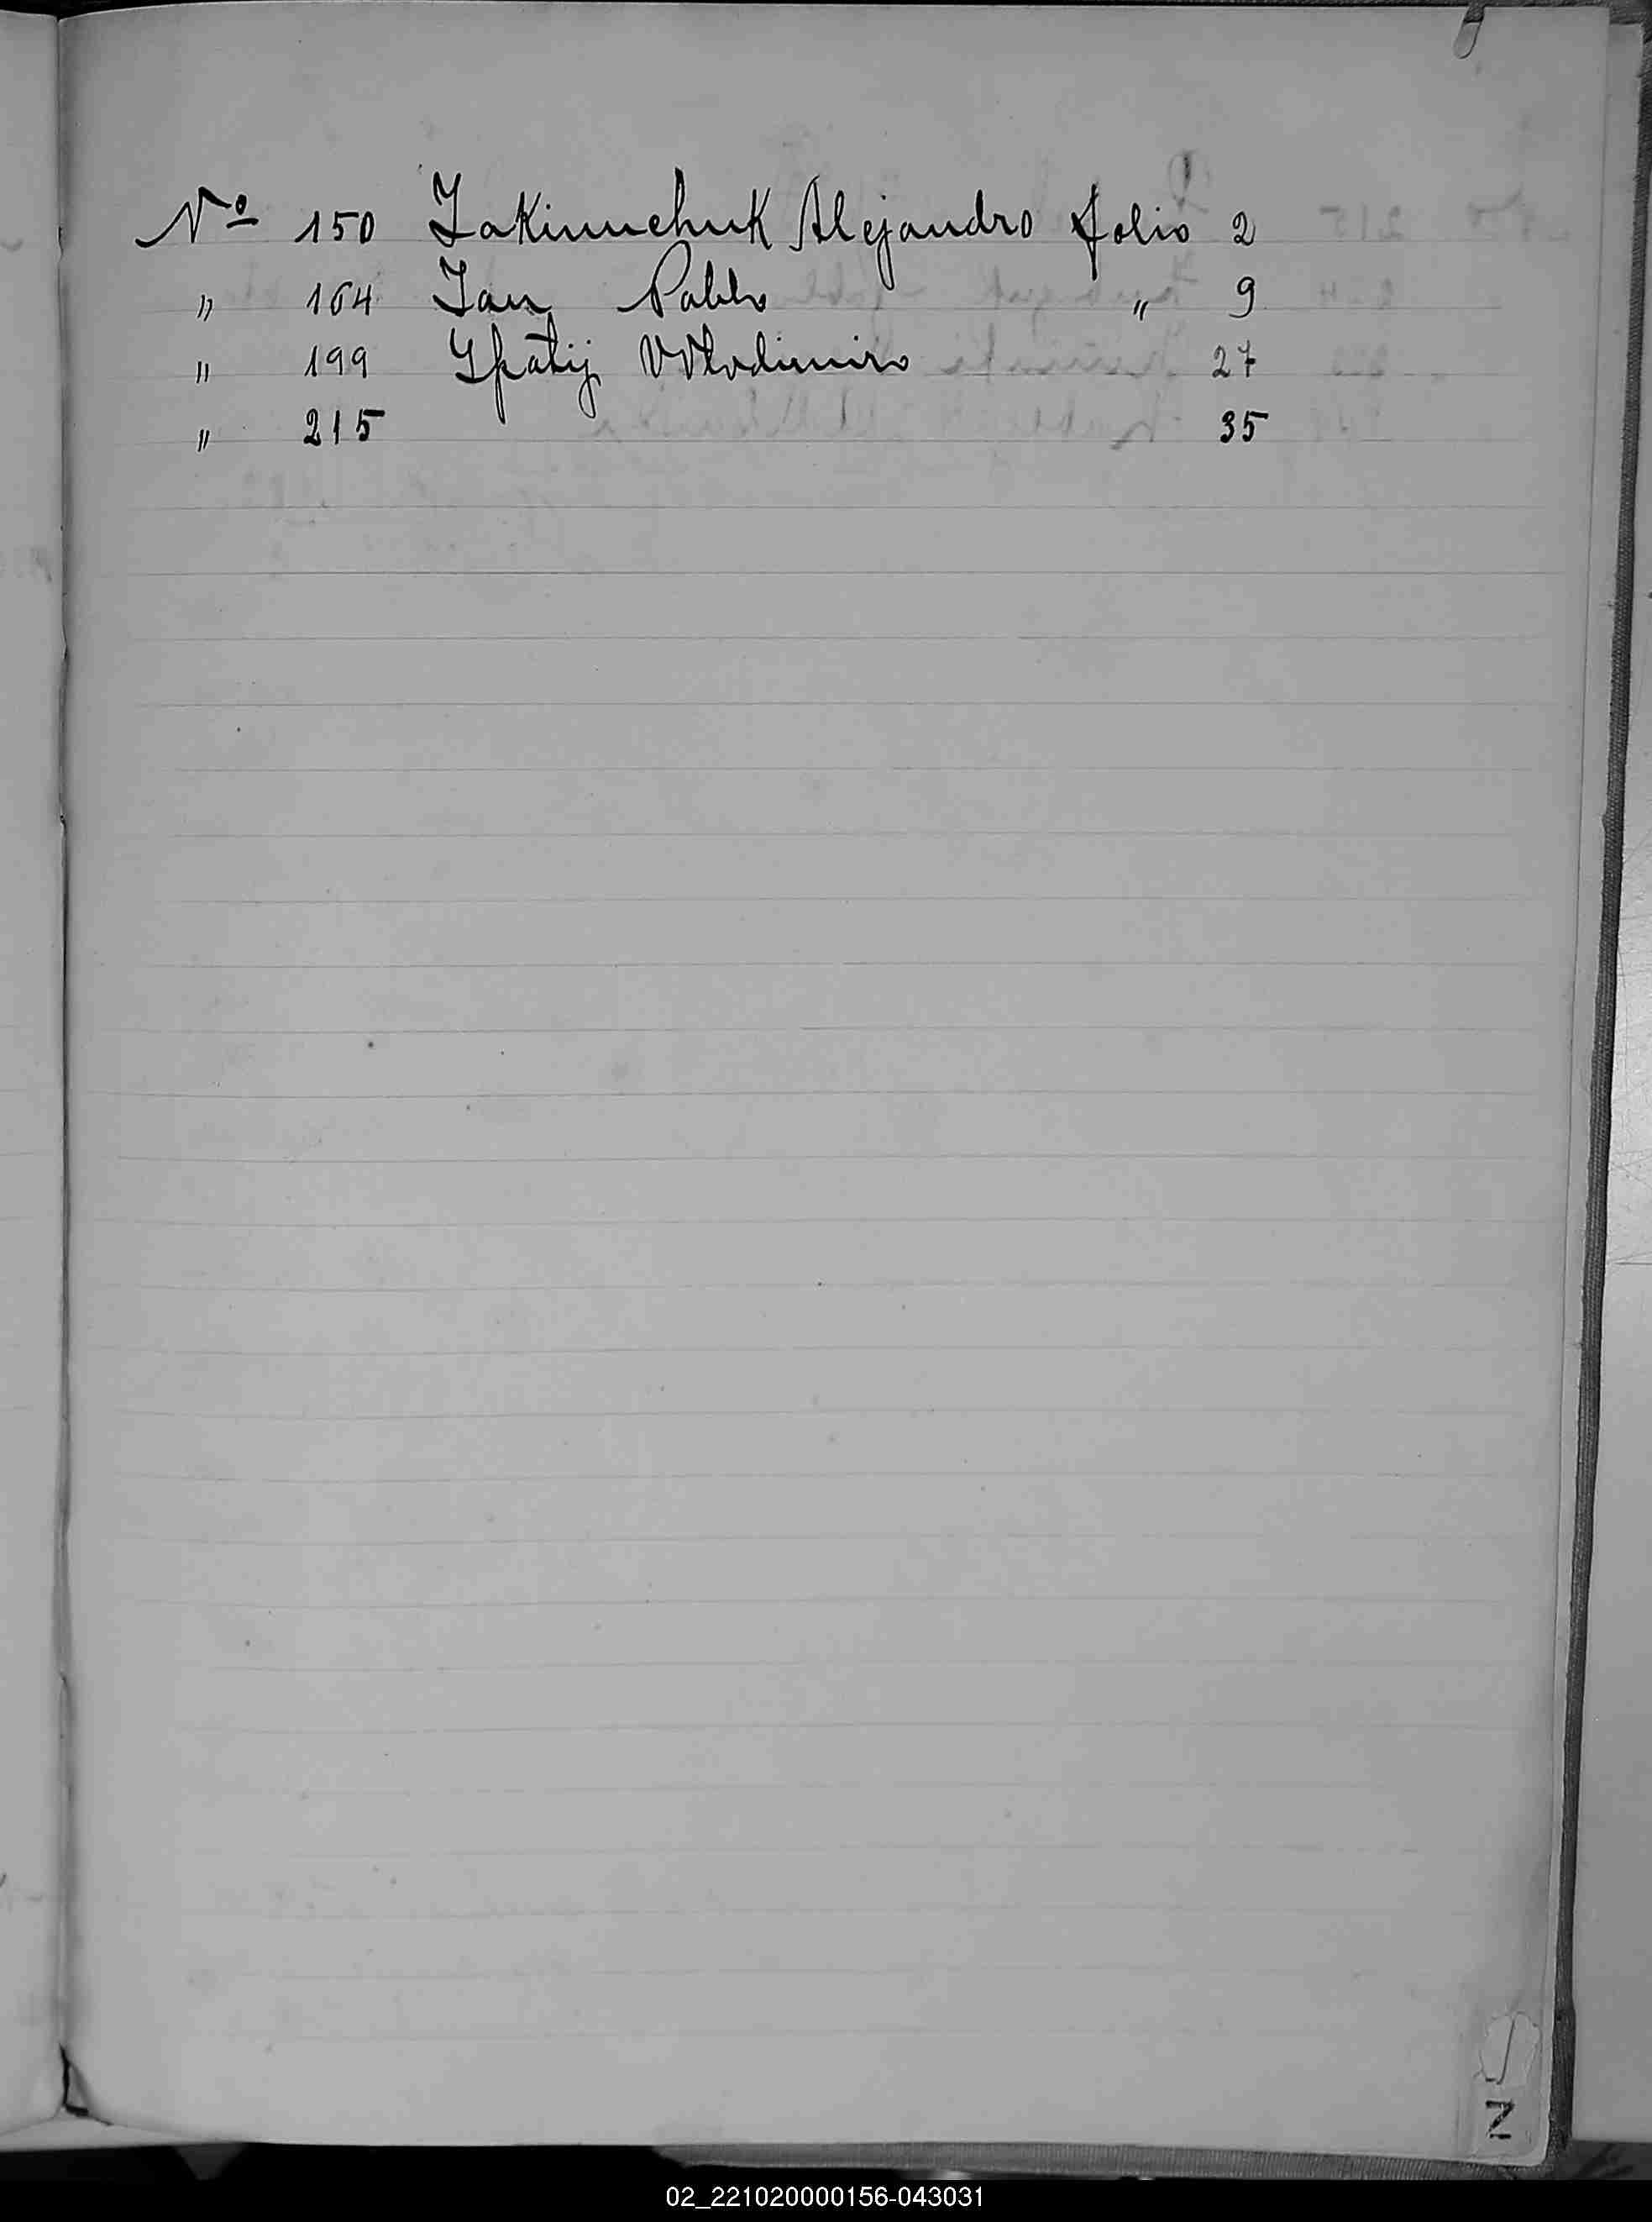 Nº 150 Iakimchuk Alejandro folio 2
" 164 Ian Pablo " 9
" 199 Ipatij Wlodimiro 27
" 215 35
N
02_221020000156-043031